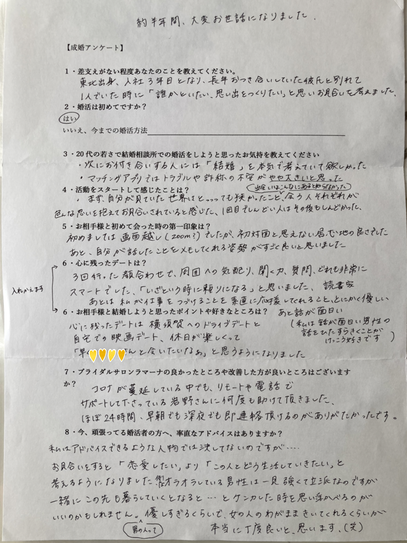 約半年間、大変お世話になりました。
【成婚アンケート】
1・差支えがない程度あなたのことを教えてください。
東北出身、入社3年目となり、長年おつき合いしていた彼氏と別れて
1人でいた時に「誰かといたい、思い出をつくりたい」と思いお見合いを考えました。
2・婚活は初めてですか？
はい
いいえ、今までの婚活方法
3・20代の若さで結婚相談所での婚活をしようと思ったお気持を教えてください
・次にお付き合いする人には「結婚」を本気で考えていて欲しかった
・マッチングアプリではトラブルや詐称の不安がやや大きいと思った
4・活動をスタートして感じたことは？
出会いはこんなにあるとは
まず、自分が見ていた世界はとっっても狭かったこと、会う人それぞれが
色んな思いを抱えてお見合いされていると感じた、1回目でしんどい人はその後もしんどかった。
5・お相手様と初めて会った時の第一印象は？
初めましては画面越し(zoom!)でしたが、初対面と思えない居心地の良さでした
あと、自分が話したことをメモしてくれる姿勢がすごく良いと思いました
6・心に残ったデートは？
3回行った顔合わせで、周囲への気配り、聞く力、質問、どれも非常に
スマートでした、「いざという時に頼りになる」と思いました、読書家
あとは私が仕事をつづけることを素直に応援してくれること、とにかく優しい
入れかえます
6・お相手様と結婚しようと思ったポイントや好きなところは？
あと話が面白い
(私は話が面白い男性の
話をひたすらきくことが
けっこう好きです)
心に残ったデートは横須賀へのドライブデートと
自宅での映画デート、休日が楽しくって
「早く
んと会いたいなぁ」と思うようになりました
7・ブライダルサロンラマーナの良かったところや改善した方が良いところはございますか
コロナが蔓延している中でも、リモートや電話で
サポートして下さっている君野さんに何度も助けて頂きました、
ほぼ24時間、早朝でも深夜でも即連絡頂けるのがありがたかったです。
8・今、頑張ってる婚活者の方へ、率直なアドバイスはありますか？
私はアドバイスできるような人物では決してないのですが・・・・
お見合いをすると「恋愛したい」より「この人とどう生活していきたい」と
考えるようになりましたオラオラしている男性は一見強くて立派なのですが
一緒にこの先も暮らしていくとなると…とケンカした時を思い浮かべるのが
いいのかもしれません。優しすぎるくらいで、女の人のわがままきいてくれるくらいが
男の人って
本当に丁度良いと、思います、(笑)